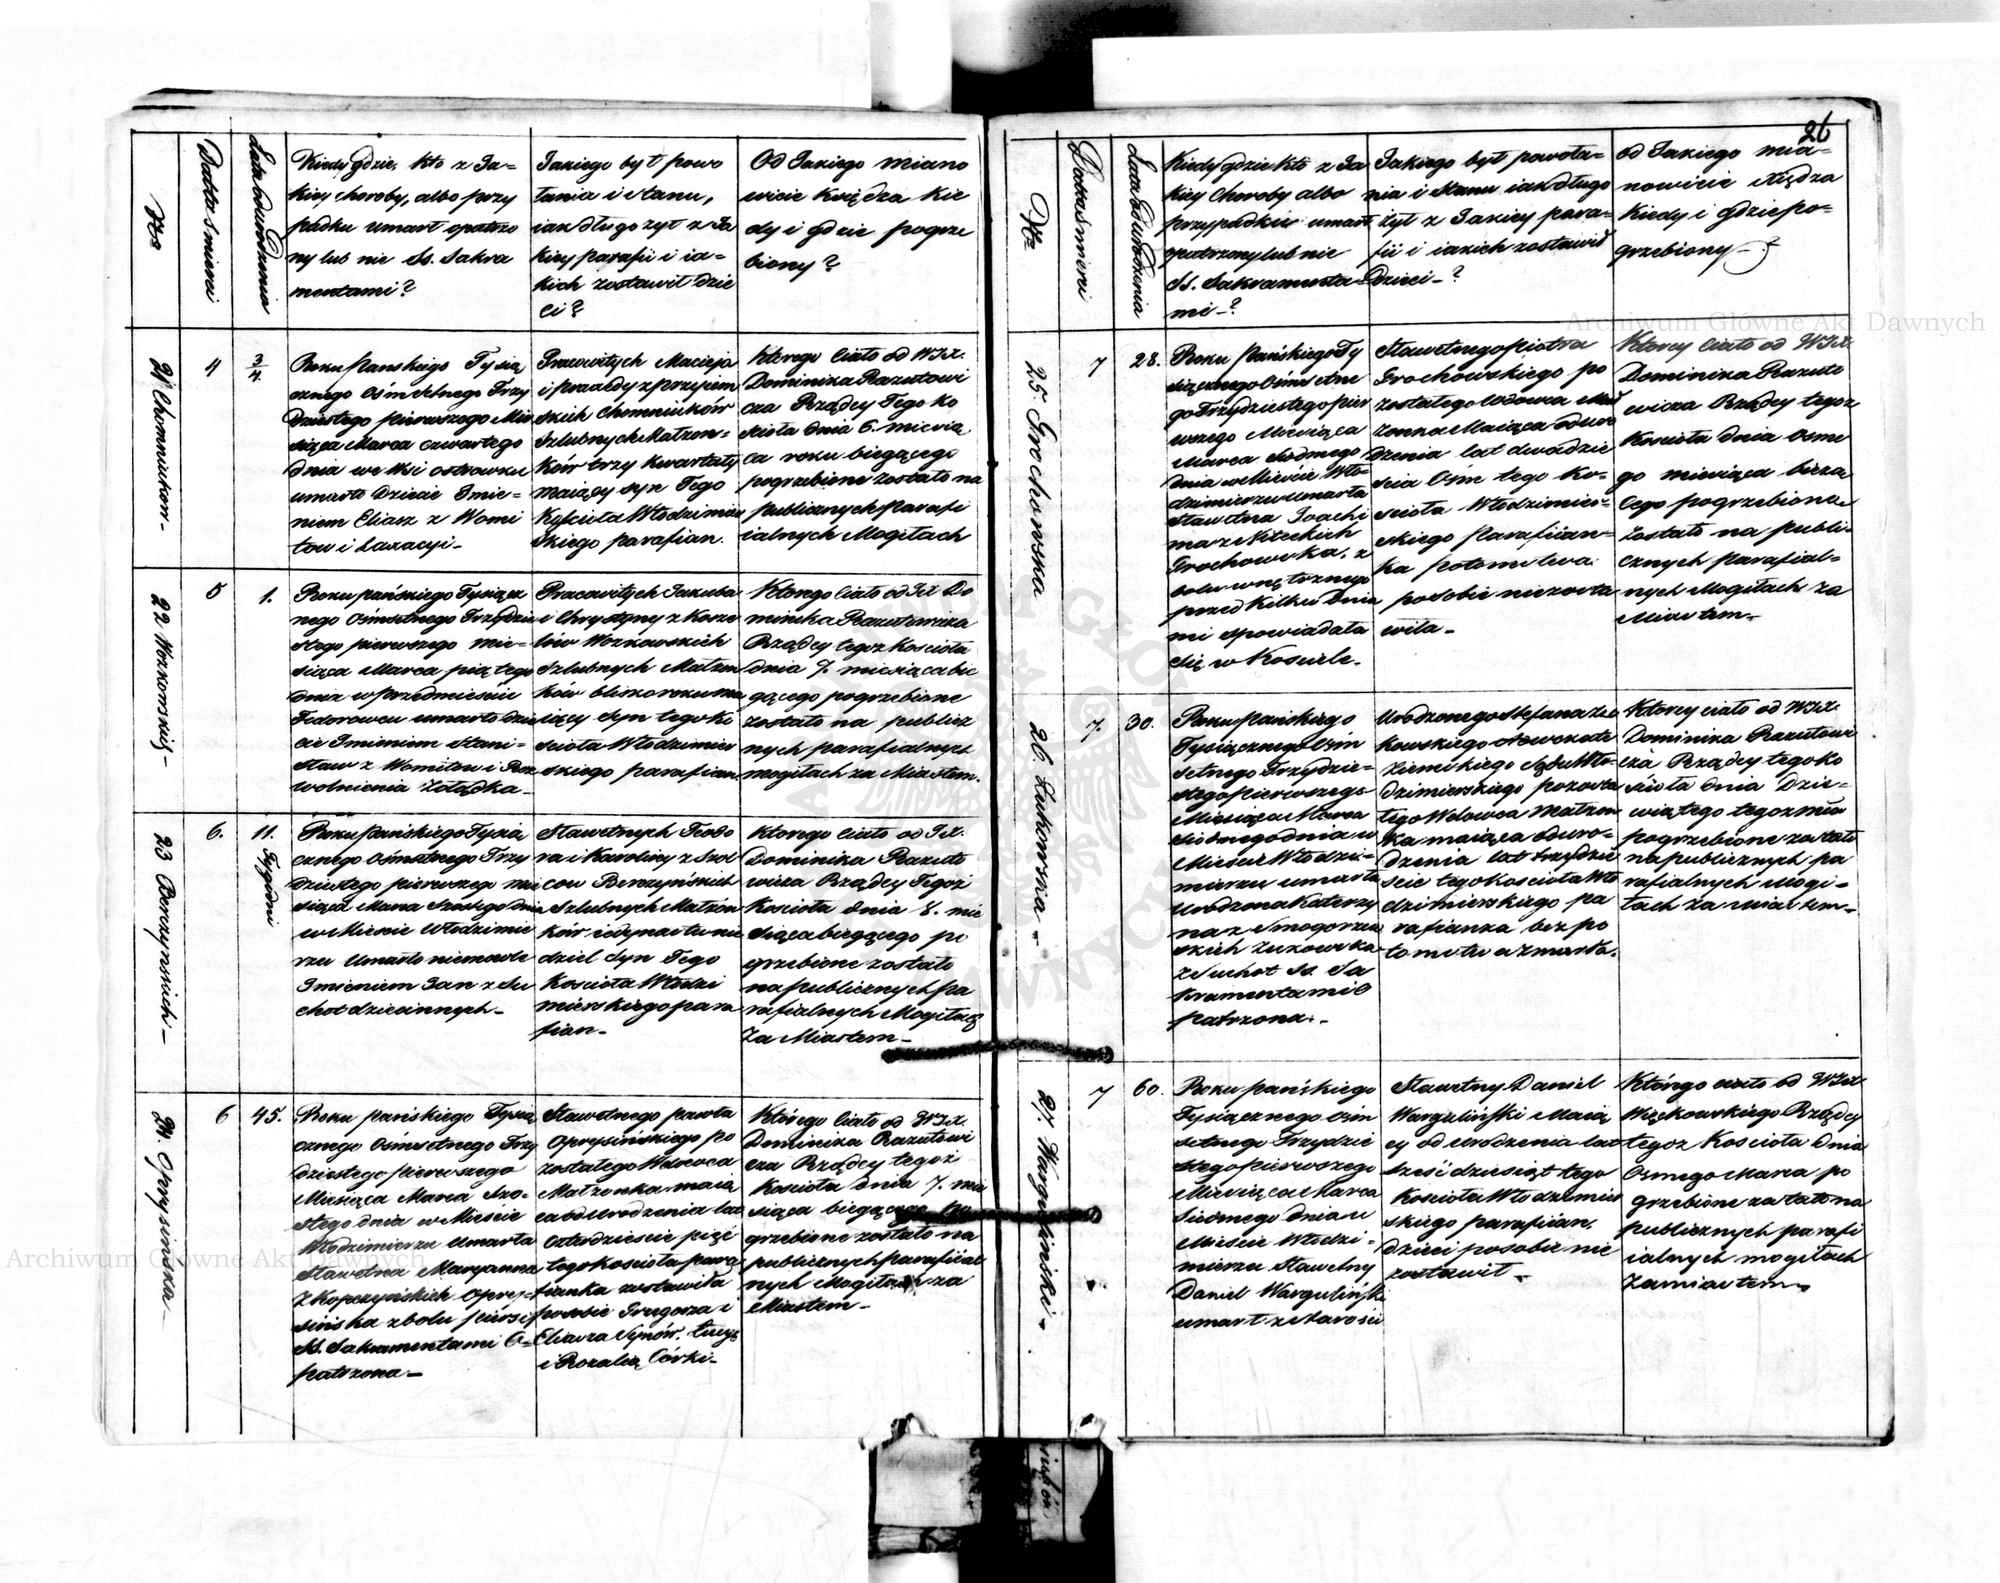 No
Datta śmierci
Lata od urodzenia
Kiedy gdzie, kto z Ja=
kiey choroby, albo przy
padku umarł opatrzo
ny lub nie SS. Sakra
mentami?
Jakiego był powo
łania i stanu,
iak długo żył z Ja
kiey parafii i ia=
kich zostawił dzie
ci?
Od Jakiego miano
wicie Księdza Kie
dy i gdzie pogrze
biony?
21 Chomiuków -
4
3/4.
Roku Panskiego Tysią
cznego Osmsetnego Trzy
Dziestego pierwszego Mie
siąca Marca czwartego
dnia we Wsi Ostrówku
umarło Dziecie Imie=
niem Eliasz z Womi
tow i Laxacyi -
Pracowitych Macieja
i
Chomiuków
Szlubnych Małżon=
ków trzy kwartały
maiący syn Tego
Kościoła Włodzimier
skiego parafian.
Ktorego Ciało od WJX.
Dominika Razutowi
cza Rządcy Tego Ko
scioła dnia 6. miesią
ca roku bieżącego
pogrzebione zostało na
publicznych Parafi
ialnych Mogiłach
22 Wozkowskiej -
5
1.
Roku pańskiego Tysiącz
nego Osmsetnego Trzydzie
stego pierwszego mie=
siąca Marca piątego
dnia w przedmieściu
Fedorowcu umarło dzie
cie Imieniem Stani=
sław z Womitow i Roz
wolnienia żołądka -
Pracowitych Jakuba
i Chrystyny z Korze
Wozkowskich
Szlubnych Małżon
ków blisko roku ma
iący Syn tego Ko
scioła Włodzimier
skiego parafian
Ktorego Ciało od JX Do
minika Razutowicza
Rządcy tegoż Kościoła
dnia 7. miesiąca bie
żącego pogrzebione
zostało na publicz
nych parafialnych
mogiłach za Miastem.
23 Berzynskich -
6.
11.
Tygodni
Roku pańskiego Tysią
cznego Osmsetnego Trzy
dziestego pierwszego mie
siąca Marca Szóstego dnia
w Mieście Włodzimie
rzu Umarło niemowle
Imieniem Jan z Su
chot dziecinnych -
Sławetnych Teodo
ra i Karoliny z Szol
cow Berczyńskich
Szlubnych Małżon
ków iedynastu nie
dziel Syn Tego
Kościoła Włodzi
mierskiego para
fian -
Ktorego Ciało od JX.
Dominika Razuto
wicza Rządcy Tegoż
Kościoła dnia 8. mie
siąca bieżącego po
grzebione zostało
na publicznych pa
rafialnych Mogiłach
Za Miastem -
24. Oprysinska -
6
45.
Roku pańskiego Tysią
cznego Osmsetnego Trzy
dziestego pierwszego
Miesiąca Marca Szó=
stego dnia w Mieście
Włodzimierzu Umarła
Sławetna Maryanna
Z Kopczyńskich Opry=
sińska z bolu piersi
SS. Sakramentami O=
patrzona -
Sławetnego pawła
Oprysińskiego po
zostałego Wdowca
Małżonka maią
ca od Urodzenia lat
czterdzieście pięć
tego kościoła para
fianka zostawiła
po sobie Grzegorza i
Eliasza Synów, Łucyę
i Rozalię Córki -
Którego Ciało od WJX.
Dominika Razutowi
cza Rządcy tegoż
Kościoła dnia 7. mie
siąca bieżącego po
grzebione zostało na
publicznych parafiial
nych Mogiłach za
Miastem -
26
No
Datta śmierci
Lata od Urodzenia
Kiedy gdzie kto z Ja
kiey Choroby albo
przypadku umarł
opatrzony lub nie
SS. Sakramenta=
mi -?
Jakiego był powoła=
nia i Stanu iak długo
żył z Jakiey para=
fii i iakich zostawił
Dzieci - ?
od Jakiego mia=
nowicie Xiędza
Kiedy i gdzie po=
grzebiony - ?
25. Grochowska
7
28.
Roku PańskiegoTy
siącznego Osmsetne
go Trzydziestego pier
wszego Miesiąca
Marca Siodmego
dnia w Mieście Wło=
dzimierzu umarła
Sławetna Joachi
ma z Niteckich
Grochowska, z
bolu wnętrznego
przed kilku dnia
mi spowiadała
się w Kościele.
Sławetnego Piotra
Grochowskiego po
zostałego Wdowca Mał
żonka Maiąca od uro
dzenia lat dwadzie
scia Ośm tego Ko=
scioła Włodzimier=
skiego Parafiian=
ka potomstwa
po sobie niezosta
wiła -
Ktorey Ciało od WJX.
Dominika Razuto
wicza Rządcy tegoż
Kościoła dnia osme
go miesiąca bieżą
cego pogrzebiona
Zostało na publi=
cznych parafial=
nych Mogiłach za
Miastem -
26. Łukowska -
7.
30.
Roku Pańskiego
Tysiącznego Ośm
setnego Trzydzie=
stego pierwszego
Miesiąca Marca
Siodmego dnia w
Mieście Włodzi=
mierzu umarła
Urodzona Katarzy
na z Smogorzew
skich Łukowska
Z Suchot SS. Sa
kramentami O
patrzona. -
Urodzonego Stefana Łu
kowskiego Adwokata
Ziemskiego Sądu Wło=
dzimierskiego pozosta
łego Wdowca Małżon
ka maiąca od uro=
dzenia lat trzydzie
ście tego Kościoła Wło
dzimierskiego pa
rafianka bez po
tomstwa zmarła.
Ktorey ciało od WJX.
Dominika Razutowi
cza Rządcy tego ko
ścioła dnia Dzie=
wiątego tegoż mies
pogrzebione zostało
na publicznych pa
rafialnych Mogi=
łach Za Miastem -
27. Wargulinski -
7
60.
Roku pańskiego
Tysiącznego Ośm
setnego Trzydzie
stego pierwszego
Miesiąca Marca
Siódmego dnia w
Mieście Włodzi=
mierzu Sławetny
Daniel Wargulińſki
umarł z Starości
Sławetny Daniel
Warguliński Maią
cy od Urodzenia lat
Sześćdziesiąt tego
Kościoła Włodzimier
skiego parafiian,
dzieci po sobie nie
zostawił -
Którego ciało od WJX
Więckowskiego Rządcy
tegoż Kościoła Dnia
Osmego Marca po
grzebione zostało na
publicznych parafi
ialnych mogiłach
Za miastem -
Archiwum Główne Akt Dawnych
Archiwum Główne Akt Dawnych